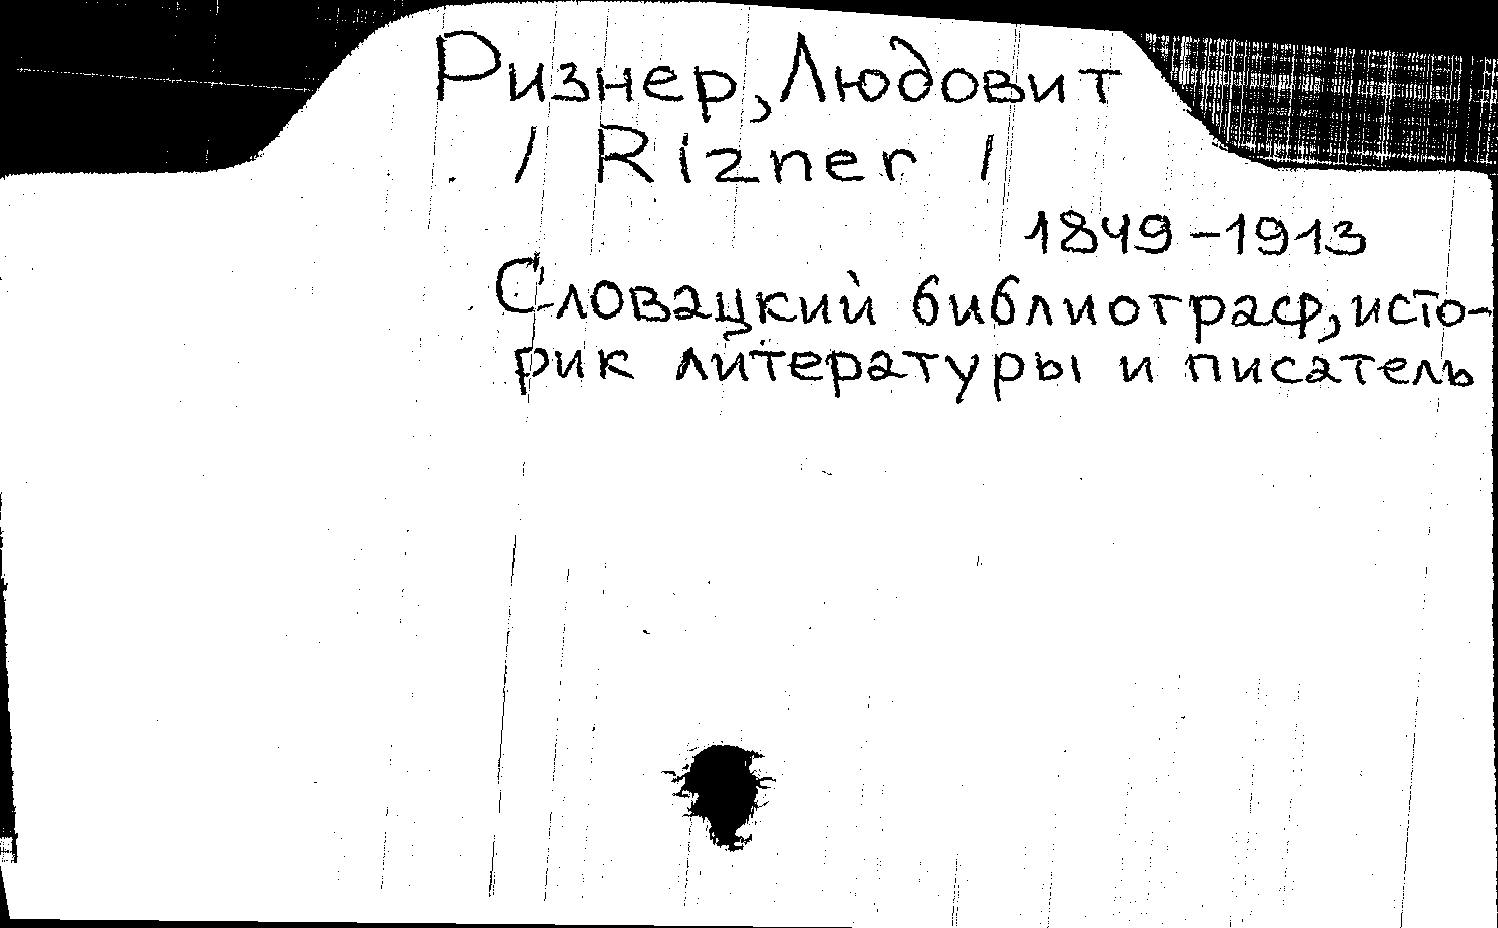 Ризнер, Людовит
/ Rizner /
1849-1913
Словацкий библиограф, исто-
рик литературы и писатель